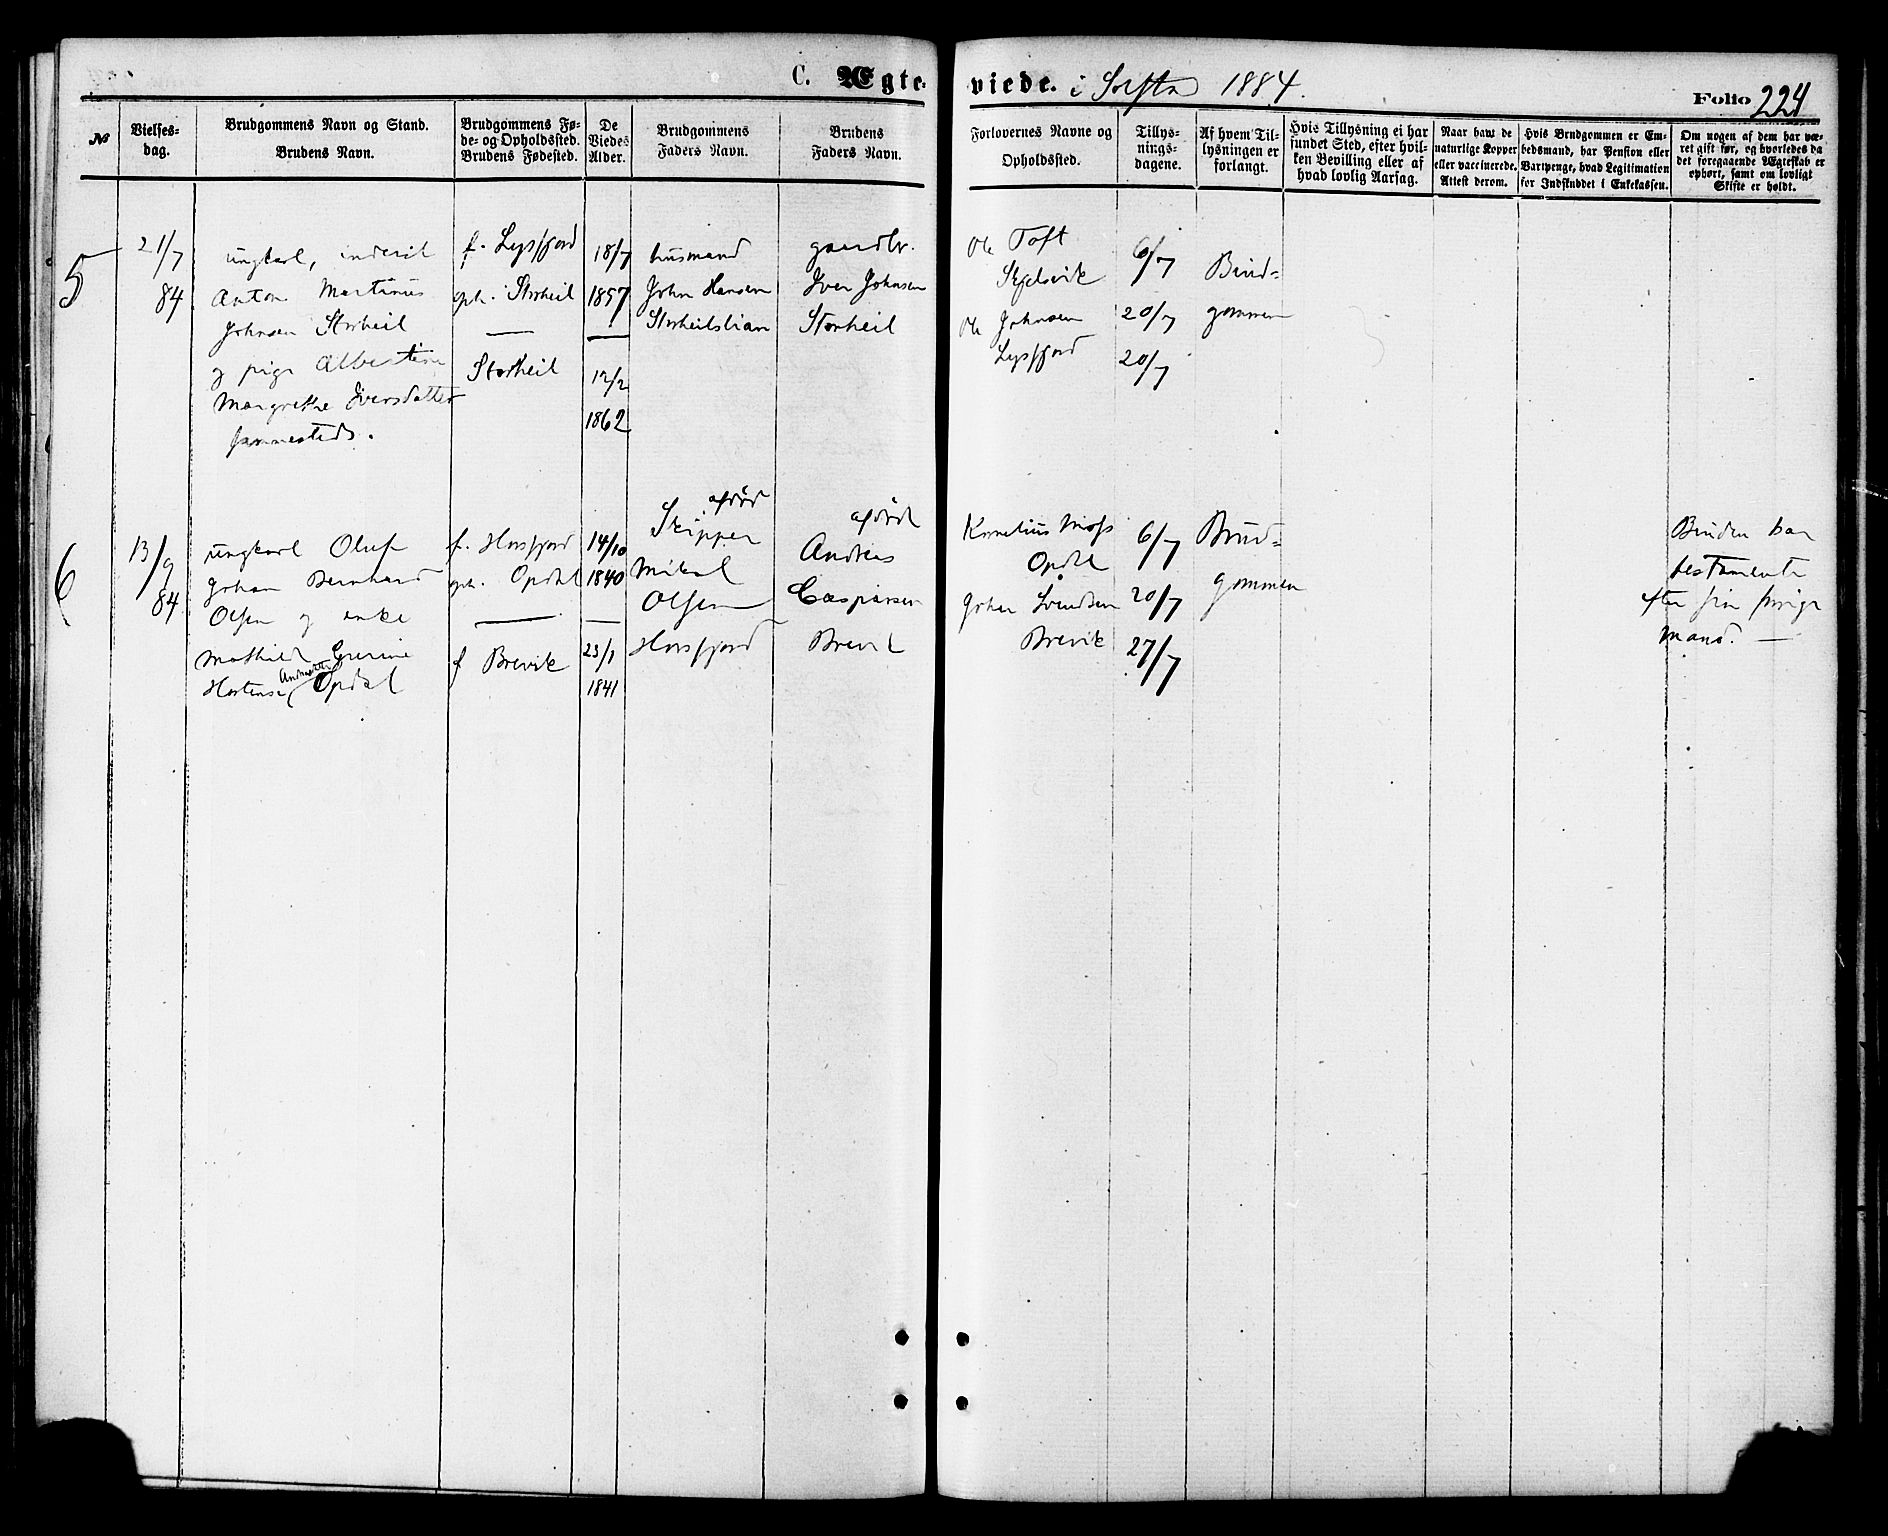 C. Ægteviede. i Solstad 1884.
Folio 224
№
Vielses-
dag.
Brudgommens Navn og Stand.
Brudens Navn.
Brudgommens Fø-
de- og Opholdssted.
Brudens Fødested.
De
Viedes
Alder.
Brudgommens
Faders Navn.
Brudens
Faders Navn.
Forlovernes Navne og
Opholdssted.
Tillys-
nings-
dagene.
Af hvem Til-
lysningen er
forlangt.
Hvis Tillysning ei har
fundet Sted, efter hvil-
ken Bevilling eller af
hvad lovlig Aarsag.
Naar havt de
naturlige Kopper
eller vaccinerede.
Attest derom.
Hvis Brudgommen er Em-
bedsmand, har Pension eller
Vartpenge, hvad Legitimation
for Indskuddet i Enkekassen.
Om nogen af dem har væ-
ret gift før, og hvorledes da
det foregaaende Ægteskab er
ophørt, samt om lovligt
Skifte er holdt.
5
21/7
84
ungkarl, inderst
Anton Martinus
Johnsen Storheil
og pige Albertine
Margrethe Iversdatter
sammesteds.
f. Lysfjord
oph. Storheil
—
Storheil
18/7
1857
—
12/2
1862
husmand
John Hansen
Storheilslian
gaardbr.
Iver Johnsen
Storheil
Ole Toft
Skjelsvik
Ole Johnsen
Lysfjord
6/7
20/7
20/7
Brud=
gommen
6
13/9
84
ungkarl Oluf
Johan Bernhard
Olsen og enke
Mathilde Grurine
Hortense Andreasdtr Opdal
f. Horsfjord
oph. Opdal
—
f Brevik
14/10
1840
—
23/1
1841
afdød
Skipper
Mikal
Olsen
Horsfjord
afdød
Andreas
Caspersen
Brevik
Kornelius Moss
Opdal
Johan Svendsen
Brevik
6/7
20/7
27/7
Brud=
gommen
Bruden har
testamente
efter sin forrige
mand. —